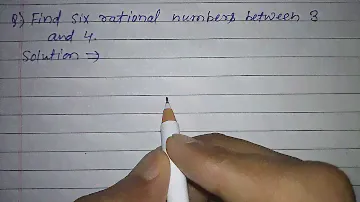 Q) Find six rational numbers between 3
and 4.
Solution →